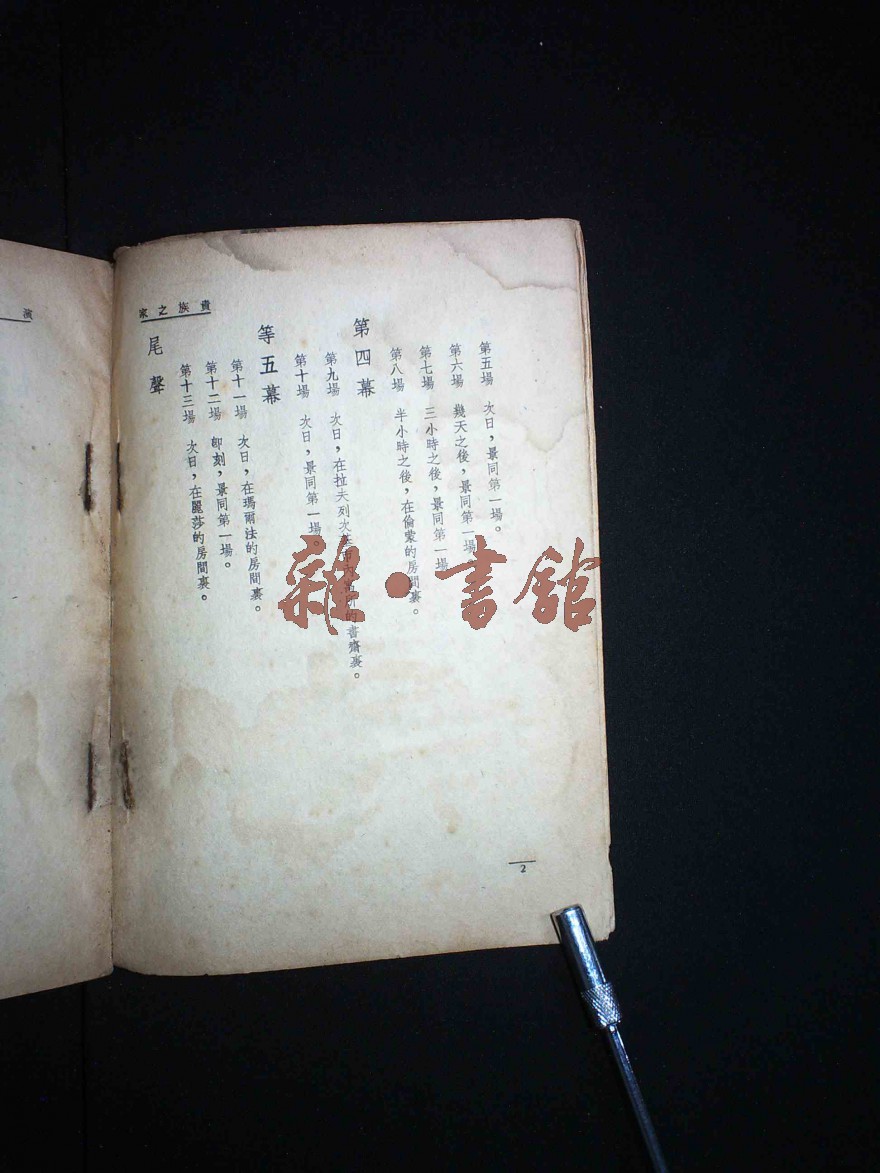 貴族之家
第五場　次日，景同第一場。
第六場　幾天之後，景同第一場
第七場　三小時之後，景同第一場
第八場　半小時之後，在倫蒙的房間裏。
第四幕
第九場　次日，在拉夫列次
的書齋裏。
第十場　次日，景同第一場。
等五幕
第十一場　次日，在瑪爾法的房間裏。
第十二場　卽刻，景同第一場。
第十三場　次日，在麗莎的房間裏。
尾聲
2
演
雜·書館